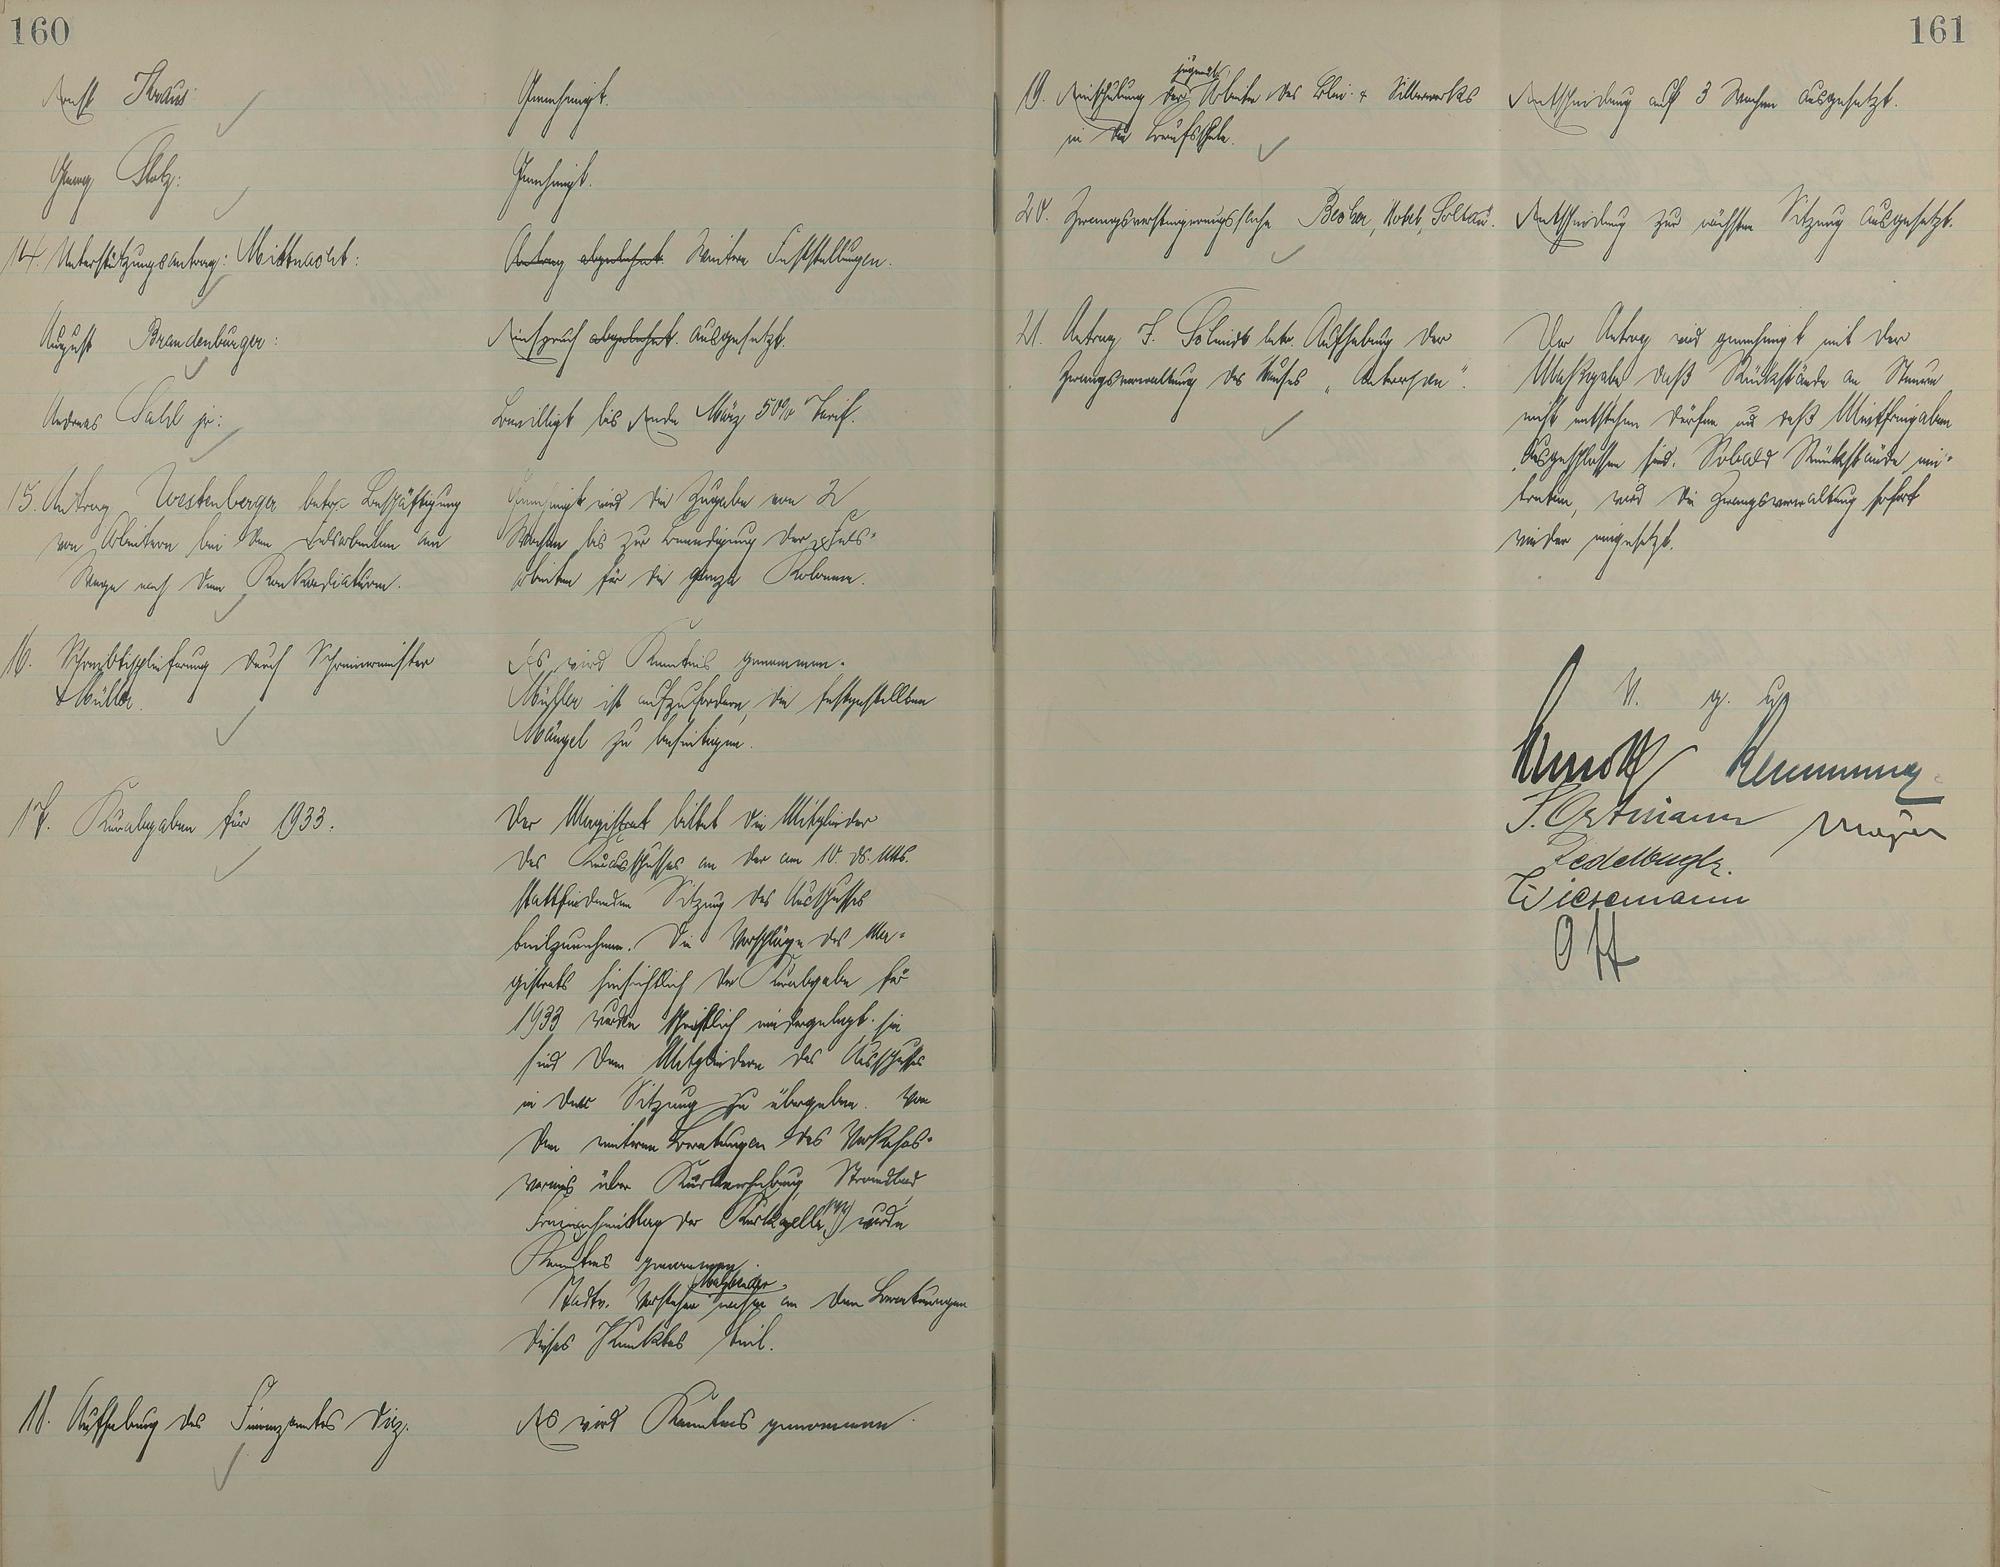 160
Ernst Kraus:
Genehmigt.
Georg Stolz:
Genehmigt.
14. Unterstützungsantrag: Mittnacht:
Antrag abgelehnt. Weitere Feststellungen.
August Brandenburger:
Einspruch abgelehnt. ausgesetzt.
Andreas Sahl jr:
Bewilligt bis Ende März 50% Tarif.
15. Antrag Westenberger betr. Beschäftigung
von Arbeitern bei den Felsarbeiten am
Wege nach dem Konkordiaturm.
Genehmigt wird die Zugabe von 2
Wochen bis zur Beendigung der Fels-
arbeiten für die ganze Kolonne.
16. Schreibtischlieferung durch Schreinermeister
Müller.
Es wird Kenntnis genommen.
Müller ist aufzufordern, die festgestellten
Mängel zu beseitigen.
17. Kurabgaben für 1933.
Der Magistrat bittet die Mitglieder
des Kurausschusses an der am 10. ds. Mts.
stattfindenden Sitzung des Ausschusses
teilzunehmen. Die Vorschläge des Ma-
gistrats hinsichtlich der Kurabgabe für
1933 wurden schriftlich niedergelegt. sie
sind den Mitgliedern des Ausschusses
in der Sitzung zu übergeben. Von
den weiteren Beratungen des Verkehrs-
vereins über Strandbad
der Kurkapelle wurde
Kenntnis genommen.
Stadtv. Vorsteher nahm an den Beratungen
dieses Punktes teil.
18. Aufhebung des Finanzamtes Diez.
Es wird Kenntnis genommen.
161
19. Einschulung der jugendl. Arbeiter des Blei- & Silberwerks
in die Berufsschule.
Entscheidung auf 3 Wochen ausgesetzt.
20. Zwangsversteigerungssache Becker, Hotel, Soltau.
Entscheidung zur nächsten Sitzung ausgesetzt.
21. Antrag F. Schmidt betr. Aufhebung der
Zwangsverwaltung des Hauses „ ".
Der Antrag wird genehmigt mit der
Maßgabe daß Rückstände an Steuern
nicht entstehen dürfen und daß Mietfreigaben
ausgeschlossen sind. Sobald Rückstände ein-
treten, wird die Zwangsverwaltung sofort
wieder eingesetzt.
V. g. u.
F. Ortmann
Meyer
Wiesemann
Ott